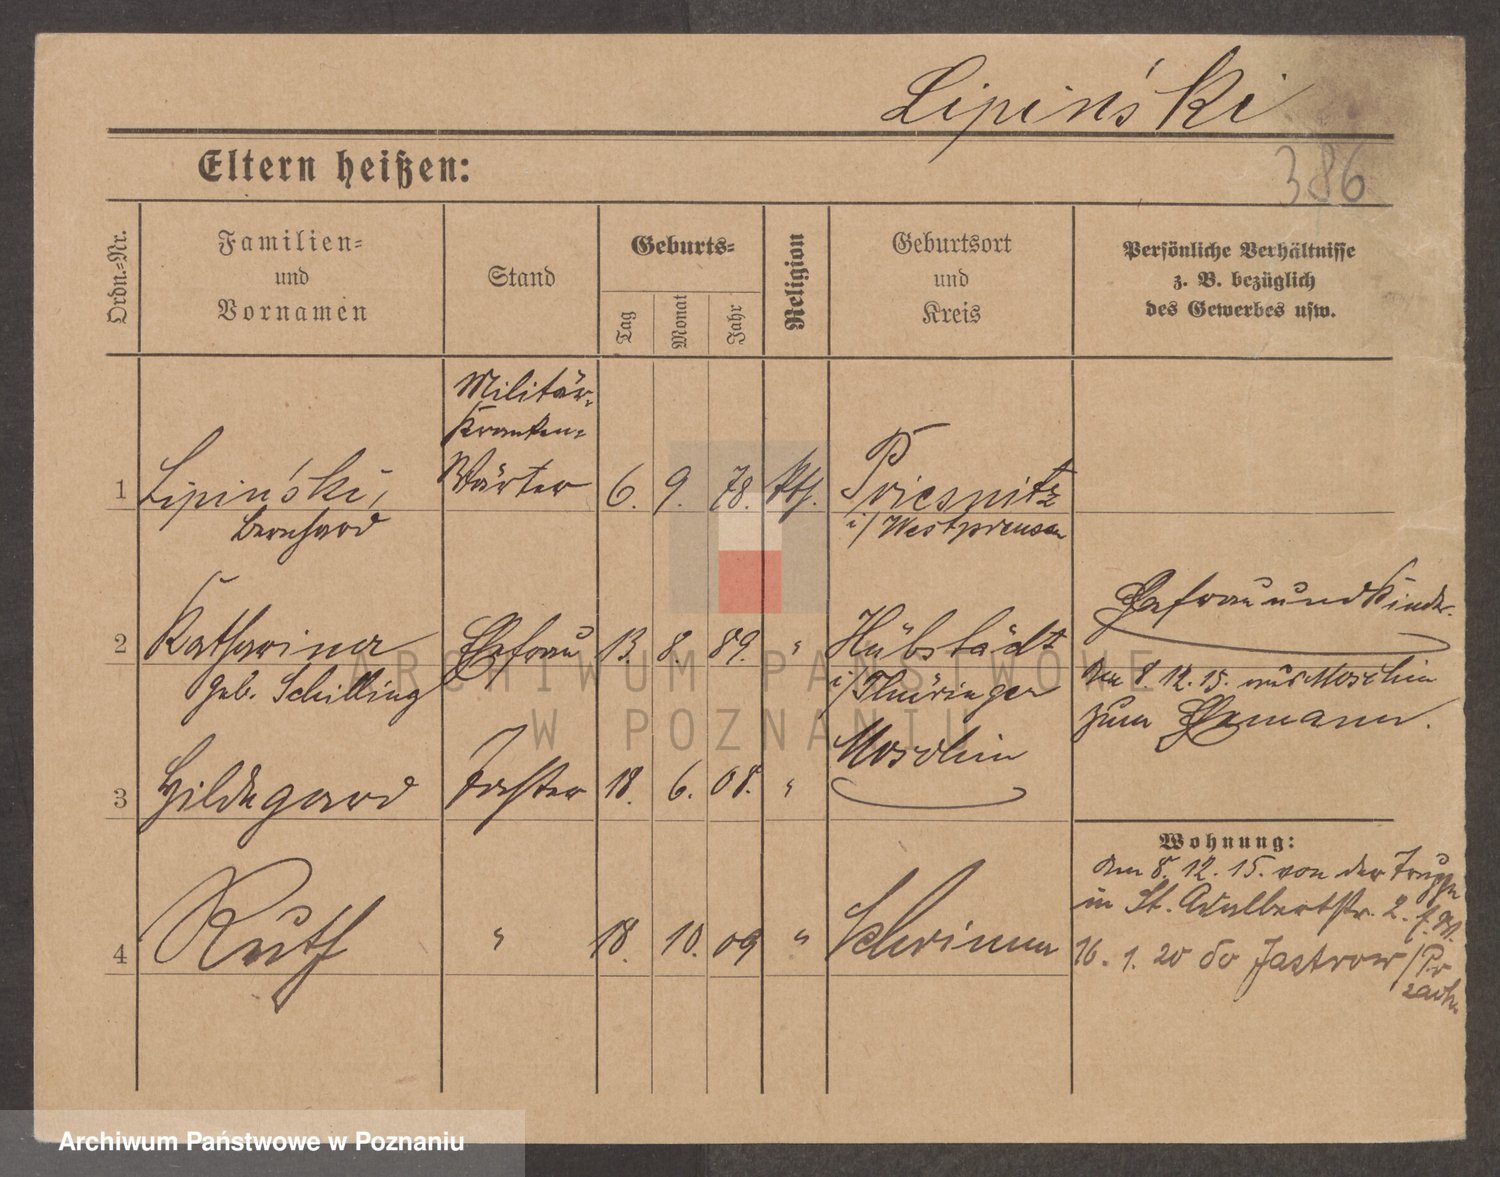 Lipiński
386
Eltern heißen:
Ordn.=Nr.
Familien=
und
Vornamen
Stand
Geburts=
Tag
Monat
Jahr
Religion
Geburtsort
und
Kreis
Persönliche Verhältnisse
z. B. bezüglich
des Gewerbes usw.
Militär=
Kranken=
1 Lipiński, Wärter 6. 9. 78. Kth. Priesnitz
Bernhard i/Westpreusen
Ehefrau und Kinder
2 Katharina Ehefrau 13. 8. 89. " Hübstädt
geb. Schilling i/Thüringen
den 8 12. 15. aus Moschin
zum Ehemann.
Moschin
3 Hildegard Tochter 18. 6. 08. "
Wohnung:
den 8. 12. 15. von der Truppe
in St. Adalbertstr. 2.
4 Ruth " 18. 10. 09 " Schrimm
16. 1. 20 do Jastrow/Pr
zach.
ARCHIWUM PAŃSTWOWE
W POZNANIU
Archiwum Państwowe w Poznaniu